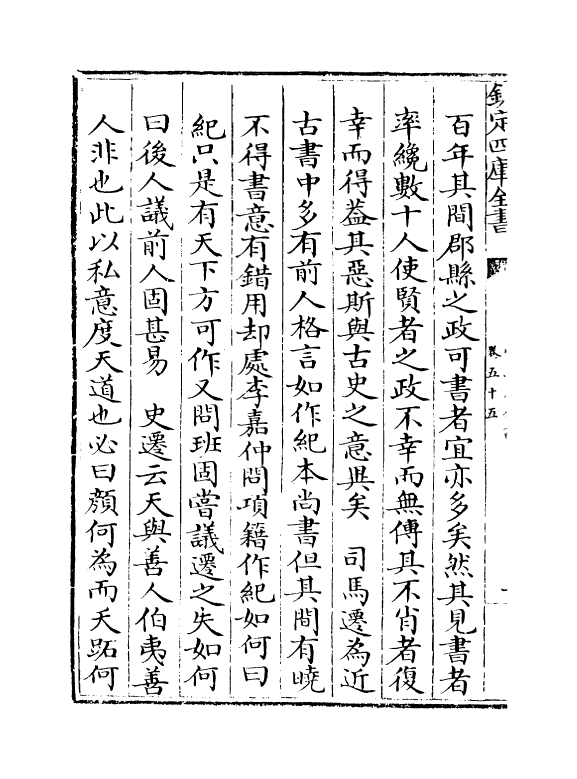 欽定四庫全書
卷五十五
百年其間郡縣之政可書者宜亦多矣然其見書者
率纔數十人使賢者之政不幸而無傳其不肖者復
幸而得葢其惡斯與古史之意異矣　司馬遷為近
古書中多有前人格言如作紀本尚書但其間有曉
不得書意有錯用却處李嘉仲問項籍作紀如何曰
紀只是有天下方可作又問班固嘗議遷之失如何
曰後人議前人固甚易　史遷云天與善人伯夷善
人非也此以私意度天道也必曰顔何為而夭跖何